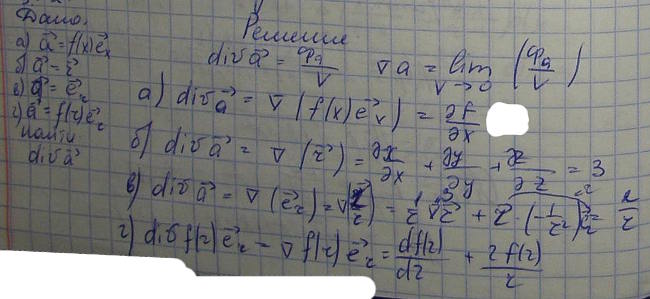 Дано:
а) a⃗ = f(x)e⃗ₓ
б) a⃗ = r⃗
в) a⃗ = e⃗ᵣ
г) a⃗ = f(r)e⃗ᵣ
Найти
div a⃗
Решение
div a⃗ = Φₐ/V ∇a = lim V→0 (Φₐ/V)
а) div a⃗ = ∇(f(x)e⃗ₓ) = ∂f/∂x
б) div a⃗ = ∇(r⃗) = ∂x/∂x + ∂y/∂y + ∂z/∂z = 3
в) div a⃗ = ∇(e⃗ᵣ) = ∇(r⃗/r) = 1/r ∇r⃗ + r⃗ · (-1/r²) = 2/r
г) div f(r)e⃗ᵣ = ∇f(r)e⃗ᵣ = df(r)/dr + 2f(r)/r